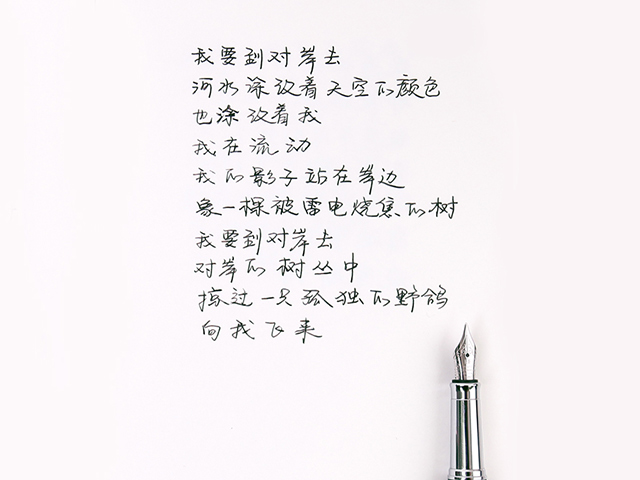 我要到对岸去
河水涂改着天空的颜色
也涂改着我
我在流动
我的影子站在岸边
象一棵被雷电烧焦的树
我要到对岸去
对岸的树丛中
掠过一只孤独的野鸽
向我飞来